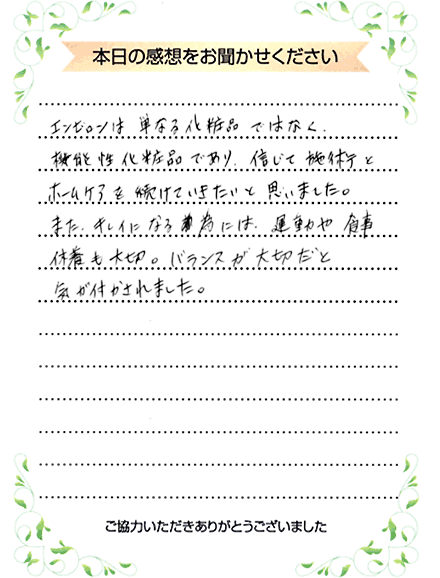 本日の感想をお聞かせください
エンビロンは単なる化粧品ではなく、
機能性化粧品であり、信じて施術と
ホームケアを続けていきたいと思いました。
また、キレイになる為には、運動や食事
休養も大切。バランスが大切だと
気が付かされました。
ご協力いただきありがとうございました